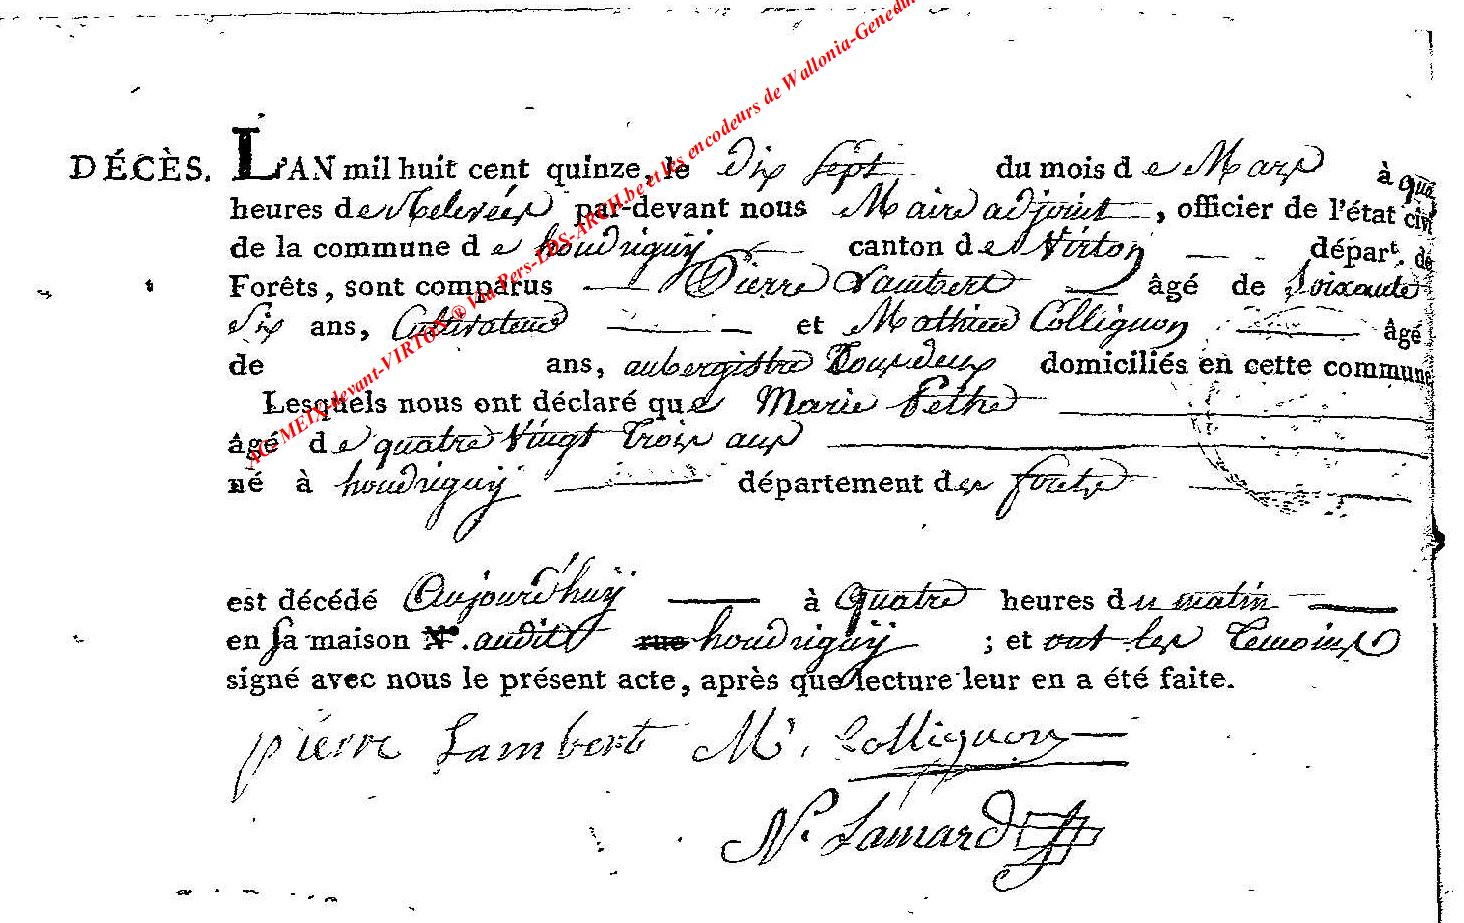 AC MEIX-devant-VIRTON® Via Pers-LDS-ARCH.be et les encodeurs de Wallonia-Genedur
DÉCÈS. L'AN mil huit cent quinze, le dix sept du mois de Mars à qua
heures de Relevées par-devant nous Maire adjoint, officier de l'état civi
de la commune de houdrigny canton de Virton départ. de
Forêts, sont comparus Pierre Lambert âgé de Soixante
Six ans, Cultivateur et Mathieu Collignon âgé
de ans, aubergistre Tous deux domiciliés en cette commune
Lesquels nous ont déclaré que Marie Pethe
âgé de quatre Vingt Trois ans
né à houdrigny département des forets
est décédé Aujourd'huy à quatre heures du matin
en sa maison N°. audit rue houdrigny ; et ont les Temoins
signé avec nous le présent acte, après que lecture leur en a été faite.
pierre Lambert M. Collignon
N. Lamard